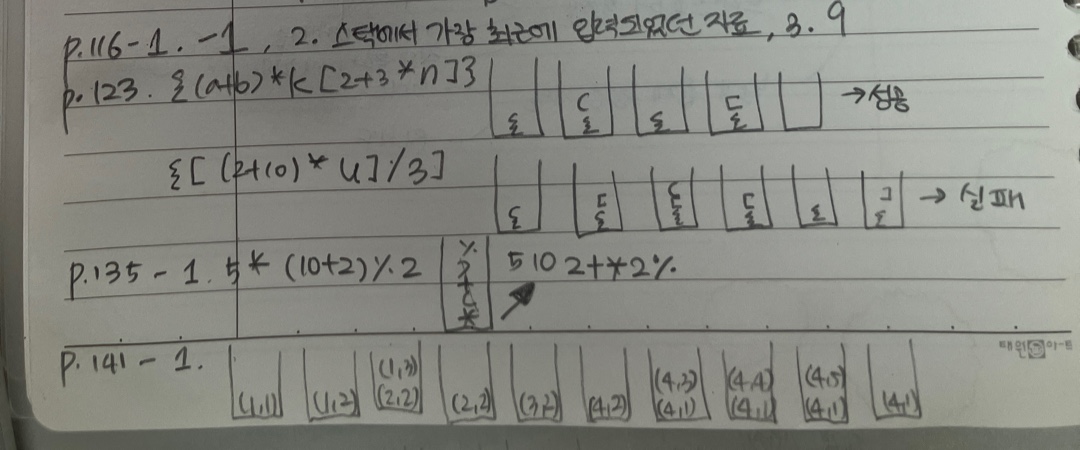 p.116-1. -1, 2. 스택에서 가장 최근에 입력되었던 자료, 3. 9
p.123. {(a+b)*k[2+3*n]} { ( { { [ { →성공
{[(2+10)*4]/3] { [ { ( [ { [ { { ] { → 실패
p.135-1. 5*(10+2)%2 % ) + ( * 5 10 2+*2%
p.141-1. (1,1) (1,2) (1,3) (2,2) (2,2) (3,2) (4,2) (4,3) (4,1) (4,4) (4,1) (4,5) (4,1) (4,1)
태원 아트